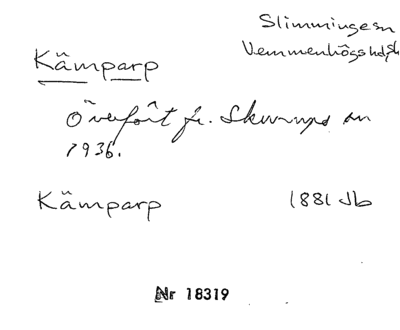 Slimminge sn
Vemmenhögs hd, Sk
Kämparp
Överfört fr. Skurups sn
1936.
Kämparp 1881 Jb
Nr 18319